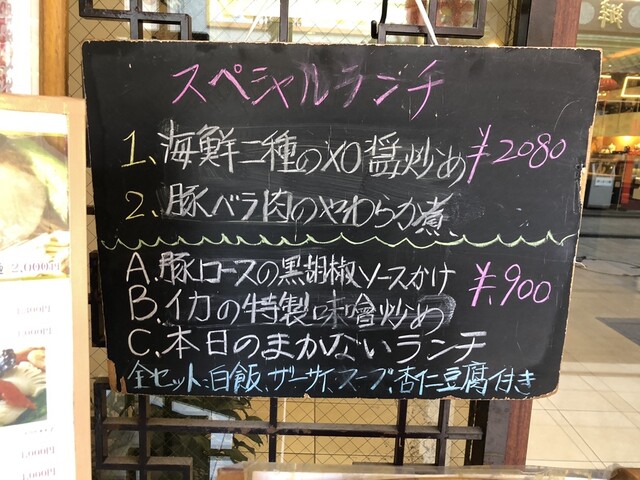 スペシャルランチ
1、海鮮二種のXO醤炒め ¥2080
2、豚バラ肉のやわらか煮
A.豚ロースの黒胡椒ソースかけ
B.イカの特製味噌炒め ¥900
C.本日のまかないランチ
全セット:白飯、ザーサイ、スープ、杏仁豆腐付き